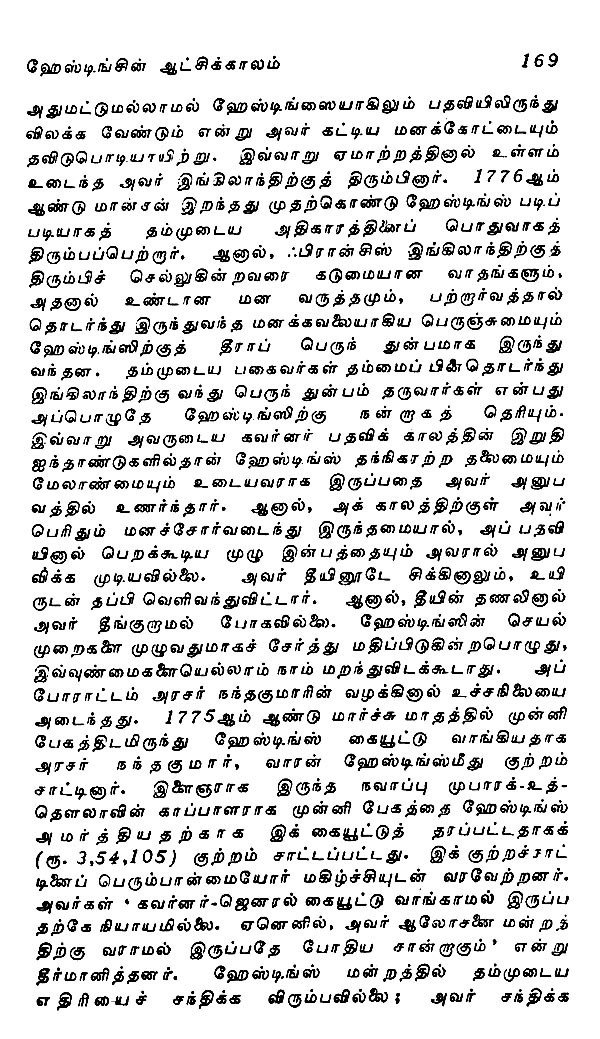 ஹேஸ்டிங்சின் ஆட்சிக்காலம் 169
அதுமட்டுமல்லாமல் ஹேஸ்டிங்ஸையாகிலும் பதவியிலிருந்து
விலக்க வேண்டும் என்று அவர் கட்டிய மனக்கோட்டையும்
தவிடுபொடியாயிற்று. இவ்வாறு ஏமாற்றத்தினால் உள்ளம்
உடைந்த அவர் இங்கிலாந்திற்குத் திரும்பினார். 1776ஆம்
ஆண்டு மான்சன் இறந்தது முதற்கொண்டு ஹேஸ்டிங்ஸ் படிப்
படியாகத் தம்முடைய அதிகாரத்தினைப் பொதுவாகத்
திரும்பப்பெற்றார். ஆனால், ஃபிரான்சிஸ் இங்கிலாந்திற்குத்
திரும்பிச் செல்லுகின்றவரை கடுமையான வாதங்களும்,
அதனால் உண்டான மன வருத்தமும், பற்றார்வத்தால்
தொடர்ந்து இருந்துவந்த மனக்கவலையாகிய பெருஞ்சுமையும்
ஹேஸ்டிங்ஸிற்குத் தீராப் பெருந் துன்பமாக இருந்து
வந்தன. தம்முடைய பகைவர்கள் தம்மைப் பின்தொடர்ந்து
இங்கிலாந்திற்கு வந்து பெருந் துன்பம் தருவார்கள் என்பது
அப்பொழுதே ஹேஸ்டிங்ஸிற்கு நன்றாகத் தெரியும்.
இவ்வாறு அவருடைய கவர்னர் பதவிக் காலத்தின் இறுதி
ஐந்தாண்டுகளில்தான் ஹேஸ்டிங்ஸ் தந்நிகரற்ற தலைமையும்
மேலாண்மையும் உடையவராக இருப்பதை அவர் அனுப
வத்தில் உணர்ந்தார். ஆனால், அக் காலத்திற்குள் அவர்
பெரிதும் மனச்சோர்வடைந்து இருந்தமையால், அப் பதவி
யினால் பெறக்கூடிய முழு இன்பத்தையும் அவரால் அனுப
விக்க முடியவில்லை. அவர் தீயினூடே சிக்கினாலும், உயி
ருடன் தப்பி வெளிவந்துவிட்டார். ஆனால், தீயின் தணலினால்
அவர் தீங்குறாமல் போகவில்லை. ஹேஸ்டிங்ஸின் செயல்
முறைகளை முழுவதுமாகச் சேர்த்து மதிப்பிடுகின்றபொழுது,
இவ்வுண்மைகளையெல்லாம் நாம் மறந்துவிடக்கூடாது. அப்
போராட்டம் அரசர் நந்தகுமாரின் வழக்கினால் உச்சநிலையை
அடைந்தது. 1775ஆம் ஆண்டு மார்ச்சு மாதத்தில் முன்னி
பேகத்திடமிருந்து ஹேஸ்டிங்ஸ் கையூட்டு வாங்கியதாக
அரசர் நந்தகுமார், வாரன் ஹேஸ்டிங்ஸ்மீது குற்றம்
சாட்டினார். இளைஞராக இருந்த நவாப்பு முபாரக்-உத்-
தௌலாவின் காப்பாளராக முன்னி பேகத்தை ஹேஸ்டிங்ஸ்
அமர்த்தியதற்காக இக் கையூட்டுத் தரப்பட்டதாகக்
(ரூ. 3,54,105) குற்றம் சாட்டப்பட்டது. இக் குற்றச்சாட்
டினைப் பெரும்பான்மையோர் மகிழ்ச்சியுடன் வரவேற்றனர்.
அவர்கள் ‘கவர்னர்-ஜெனரல் கையூட்டு வாங்காமல் இருப்ப
தற்கே நியாயமில்லை. ஏனெனில், அவர் ஆலோசனை மன்றத்
திற்கு வராமல் இருப்பதே போதிய சான்றாகும்’ என்று
தீர்மானித்தனர். ஹேஸ்டிங்ஸ் மன்றத்தில் தம்முடைய
எதிரியைச் சந்திக்க விரும்பவில்லை; அவர் சந்திக்க